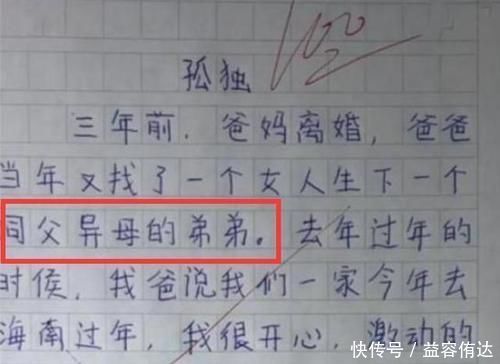 100
孤独
三年前.爸妈离婚,爸爸
当年又找了一个女人生下一个
同父异母的弟弟。去年过年的
时候,我爸说我们一家今年去
海南过年,我很开心,激动的
快传号/益容侑达